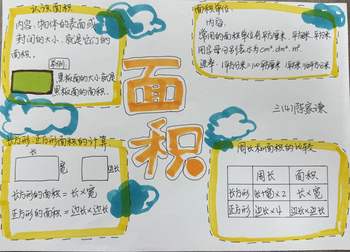 认识面积
内容：物体的表面或
封闭图形的大小，就是它们的
面积。
举例
黑板面的大小就是
黑板面的面积。
面积单位
内容：
常用的面积单位有平方厘米、平方分米、平方米
用字母分别表示为cm²、dm²、m²。
进率：1平方分米=100平方厘米 1平方米=100平方分米
面
积
三(4)
长方形、正方形面积的计算
长
宽
边长
长方形的面积=长×宽
正方形的面积=边长×边长
周长和面积的比较
周长 面积
长方形 (长+宽)×2 长×宽
正方形 边长×4 边长×边长